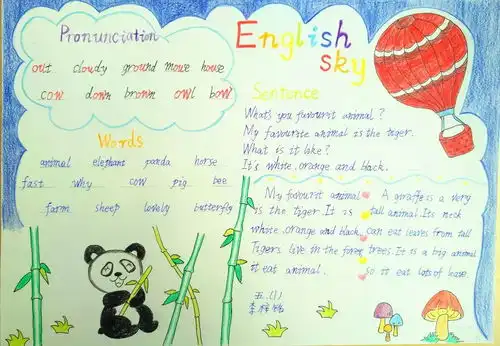 Pronunciation
out cloudy ground mouse house
cow down brown owl bow
Words
animal elephant panda horse
fast why cow pig bee
farm sheep lovely butterfly
English
sky
Sentance
What's you favourit animal?
My favourite animal is the tiger.
What is it like?
It's white, orange and black.
My favourit animal
is the tiger. It is
white, orange and black
Tigers live in the forest
it eat animal.
A giraffe is a very
tall animal. Its neck
can eat leaves from tall
trees. It is a big animal
so it eat lots of leave.
五.(1)
李